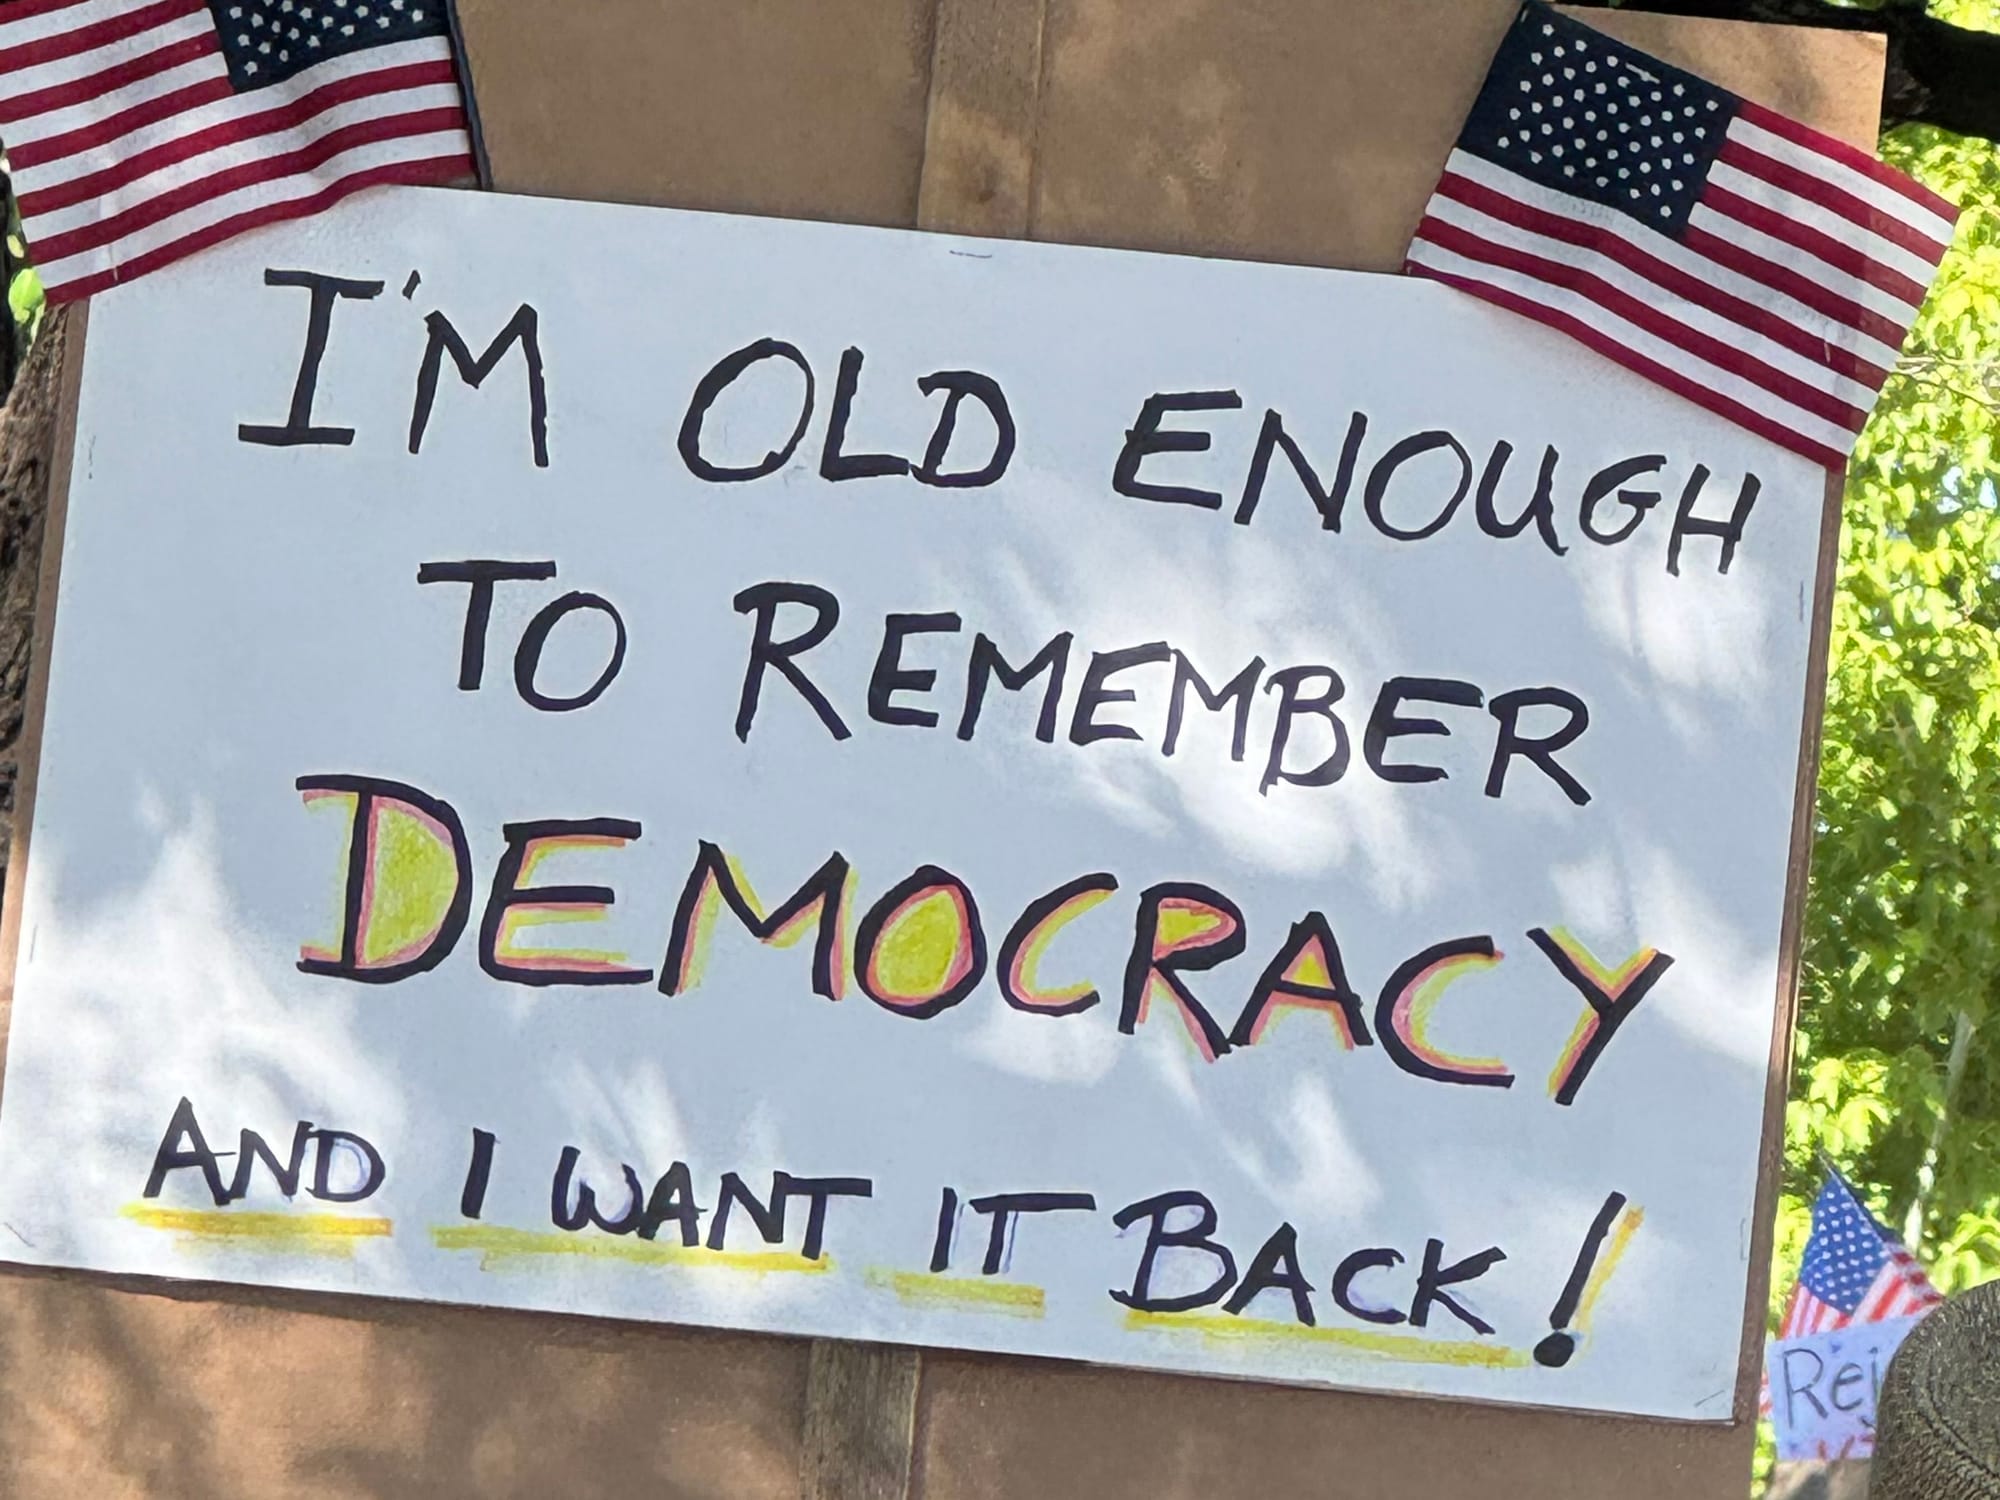 I'M OLD ENOUGH
TO REMEMBER
DEMOCRACY
AND I WANT IT BACK!